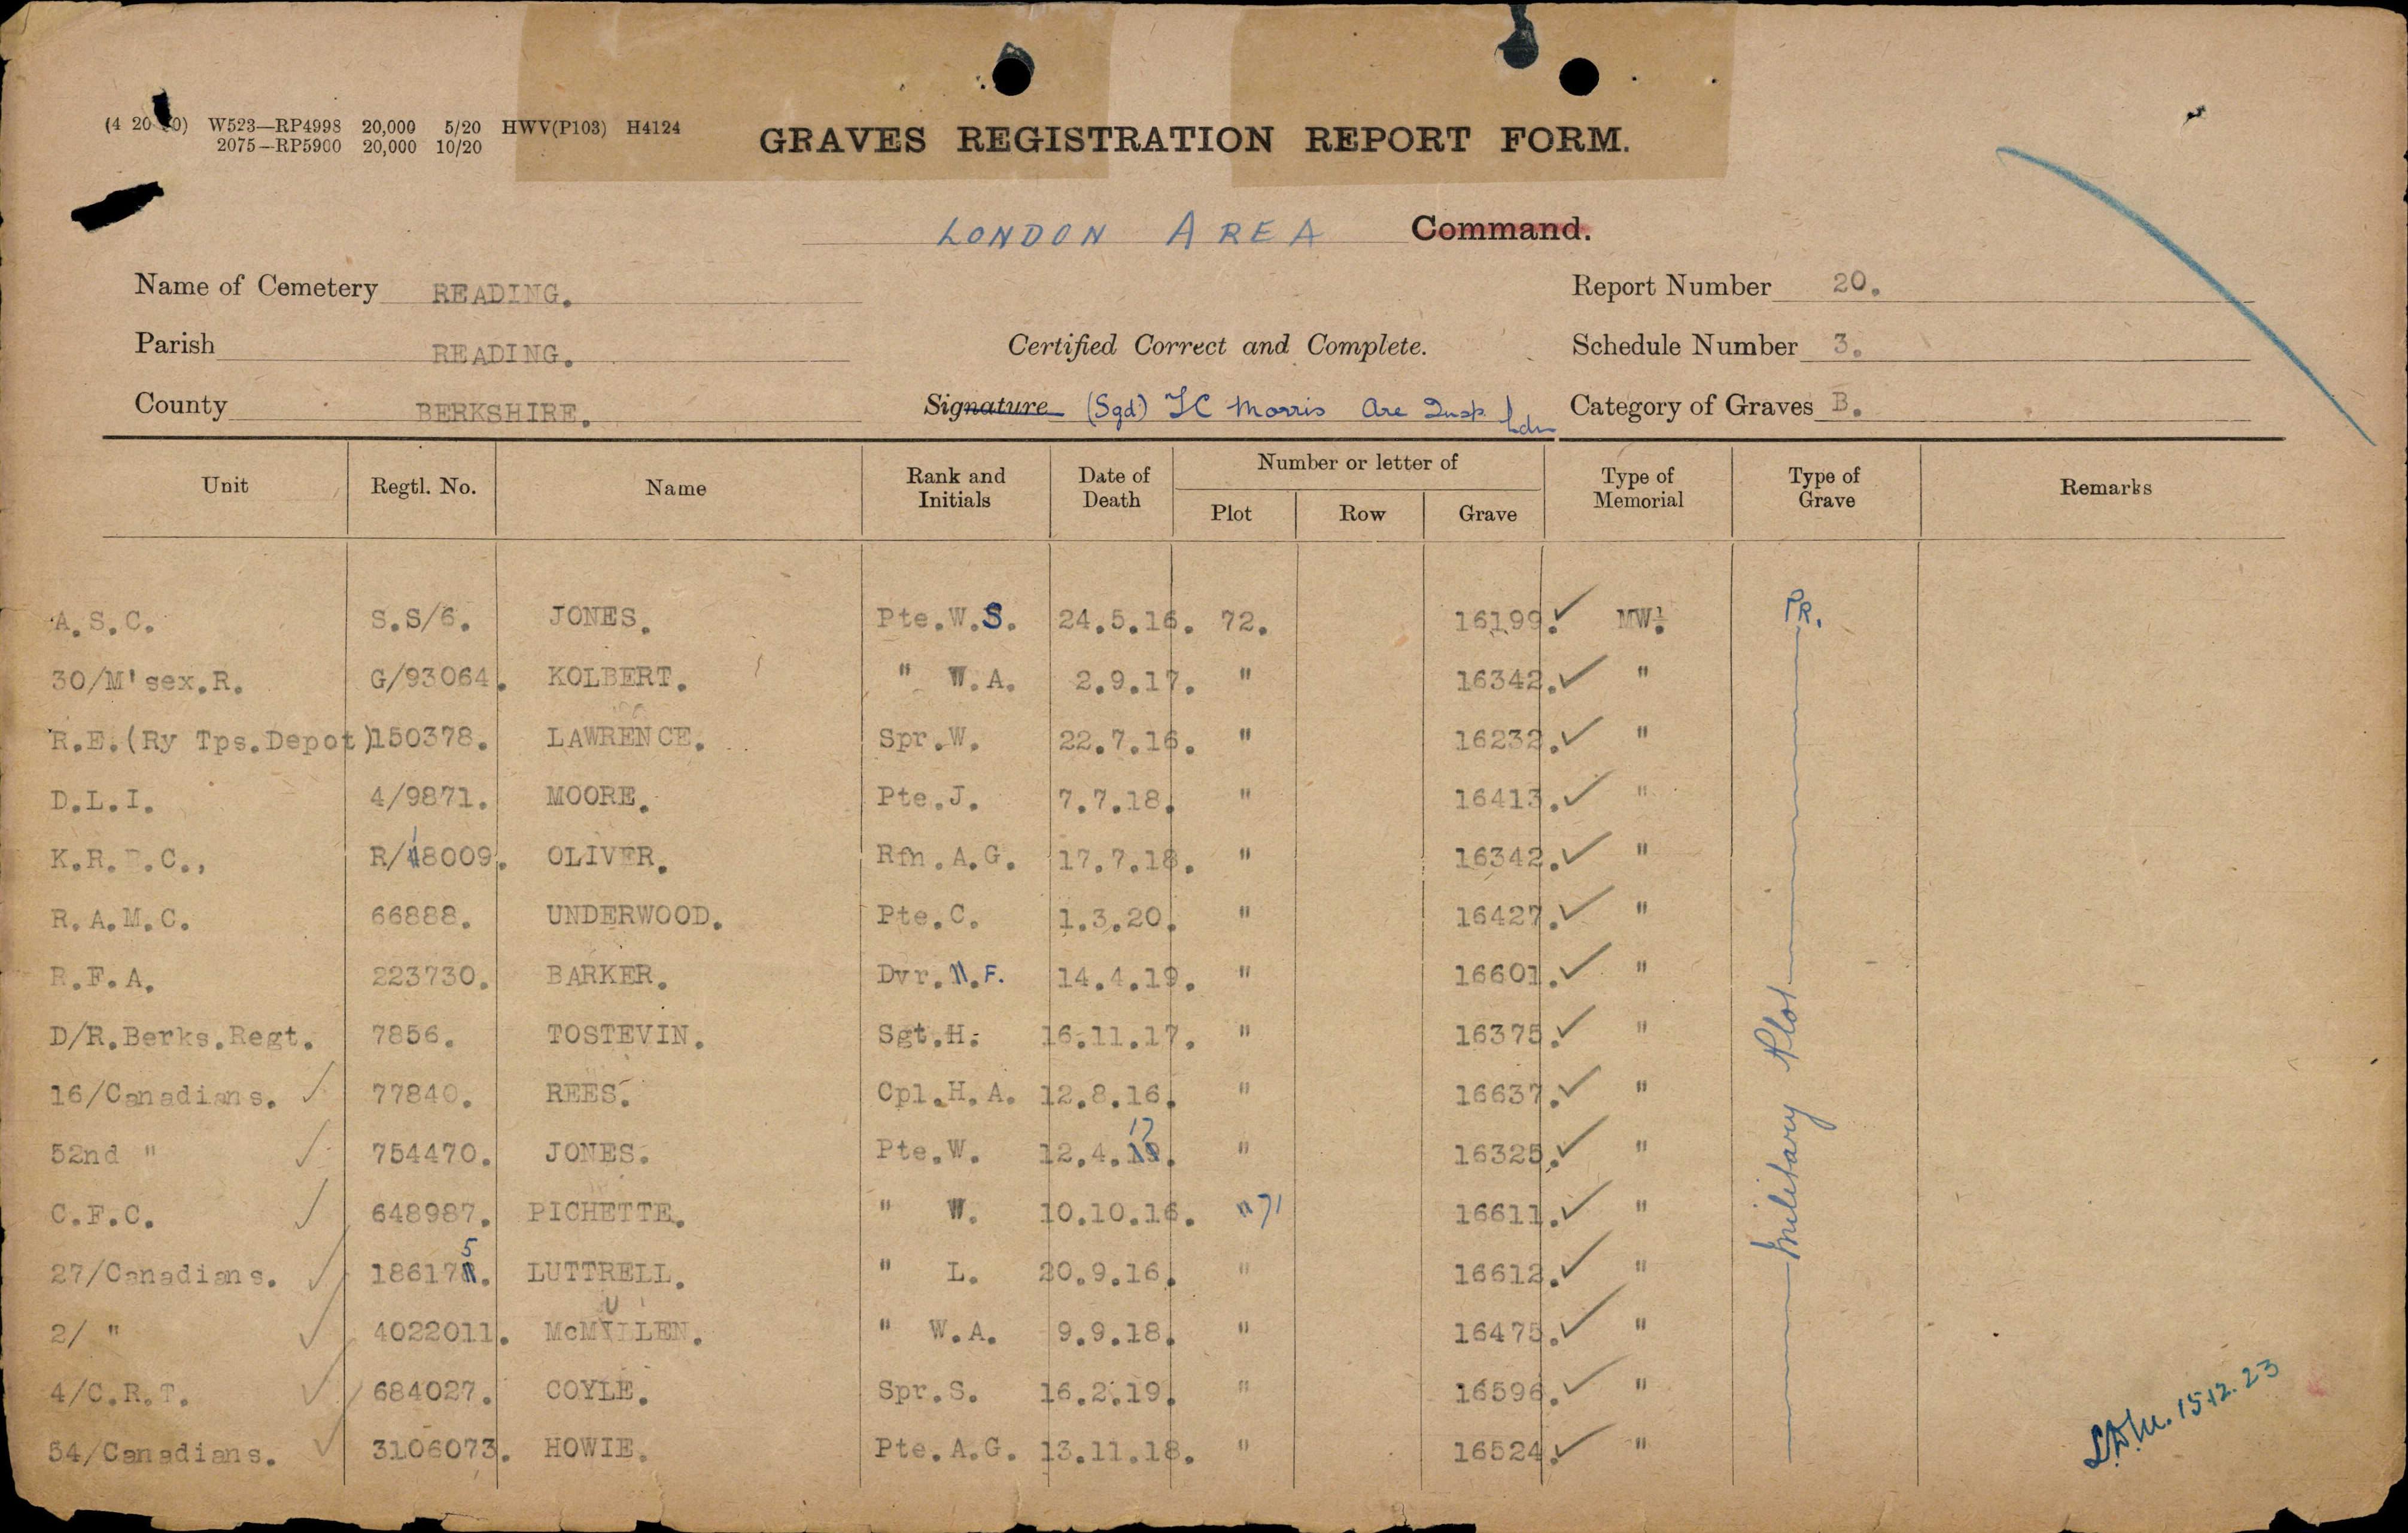 (4 20 0) W523—RP4998 20,000 5/20 HWV(P103) H4124
2075—RP5900 20,000 10/20
GRAVES REGISTRATION REPORT FORM.
LONDON AREA Command.
Name of Cemetery READING. Report Number 20.
Parish READING. Certified Correct and Complete. Schedule Number 3.
County BERKSHIRE. Signature (Sgd) Morris Are Insp. Ldn Category of Graves B.
Unit Regtl. No. Name Rank and Initials Date of Death Number or letter of Plot Row Grave Type of Memorial Type of Grave Remarks
A.S.C. S.S/6. JONES. Pte.W.S. 24.5.16. 72. 16199. ✓ MW1. PR.
30/M'sex.R. G/93064. KOLBERT. " W.A. 2.9.17. " 16342. ✓ "
R.E.(Ry Tps.Depot) 150378. LAWRENCE. Spr.W. 22.7.16. " 16232. ✓ "
D.L.I. 4/9871. MOORE. Pte.J. 7.7.18. " 16413. ✓ "
K.R.R.C., R/18009. OLIVER. Rfn.A.G. 17.7.18. " 16342. ✓ "
R.A.M.C. 66888. UNDERWOOD. Pte.C. 1.3.20. " 16427. ✓ "
R.F.A. 223730. BARKER. Dvr. F. 14.4.19. " 16601. ✓ "
D/R.Berks.Regt. 7856. TOSTEVIN. Sgt.H. 16.11.17. " 16375. ✓ "
16/Canadians. ✓ 77840. REES. Cpl.H.A. 12.8.16. " 16637. ✓ "
52nd " ✓ 754470. JONES. Pte.W. 12.4.17. " 16325. ✓ "
C.F.C. ✓ 648987. PICHETTE. " W. 10.10.16. 71 16611. ✓ "
27/Canadians. ✓ 186175. LUTTRELL. " L. 20.9.16. " 16612. ✓ "
2/ " ✓ 4022011. McMULLEN. " W.A. 9.9.18. " 16475. ✓ "
4/C.R.T. ✓ 684027. COYLE. Spr.S. 16.2.19. " 16596. ✓ "
54/Canadians. ✓ 3106073. HOWIE. Pte.A.G. 13.11.18. " 16524. ✓ "
Military Plot
15.12.23